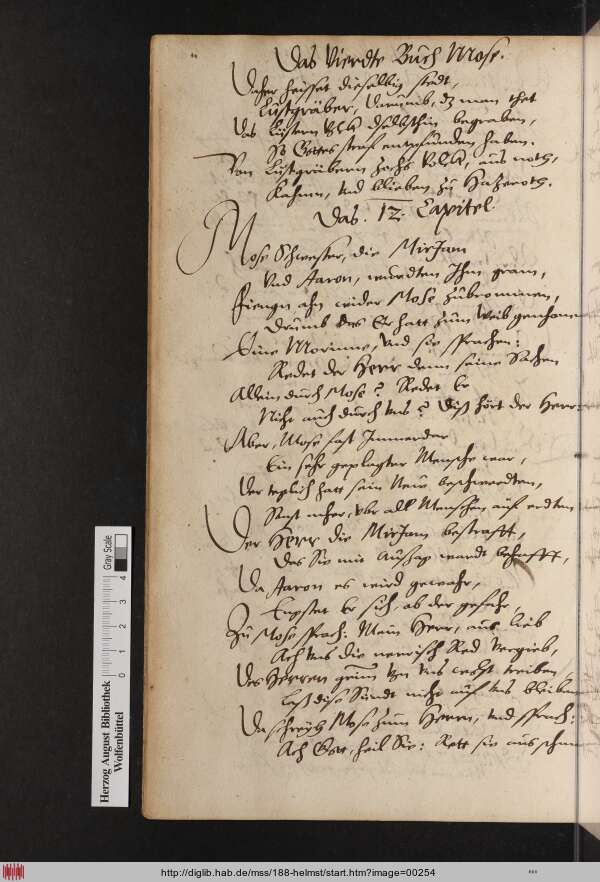 Das Vierdte Buch Mose.
Daher heisset dieselbig stedt,
Lustgräber, darumb, dz man thet
Das lüstern Volck daselbsthin begraben,
So Gottes straf empfunden haben.
Von Lustgräbern zohe Volck, auss noth,
Kahmn, vnd blieben zu Hazeroth.
Das. 12. Capitel.
Mose Schwester, die MirJam
Vnd Aaron, wurdten Ihm gram,
Fiengn ahn wider Mose zubrommen,
Drumb das Er hatt zum Weib genhomen
Eine Morinne, vnd sie sprachen:
Redet der Herr denn seine Sachen
Allein durch Mose? Redet Er
Nicht auch durch vns? Diss hört der Herr:
Aber, Mose fast Immerdar
Ein sehr geplagter Mensche war,
Der teglich hatt sein New beschwerdten,
Sonst mher, vbr all Menschen auf erdten
Der Herr die MirJam bestrafft,
Das Sie mit Aussatz wardt behafft,
Da Aaron es wird gewahr,
Er sich, ob der gefahr,
Zu Mose sprach: Mein Herr, auss lieb
Ach vns die nerrisch Red Vergieb,
Des Herren grim von vns treiben
Lass dise Sündt nicht auf vns bleiben
Da schreyet Mose zum Herrn, vnd sprach:
Ach Gott, heil Sie: Rett sie aus
Herzog August Bibliothek
Wolfenbüttel
0 1 2 3 4
Gray Scale
http://diglib.hab.de/mss/188-helmst/start.htm?image=00254